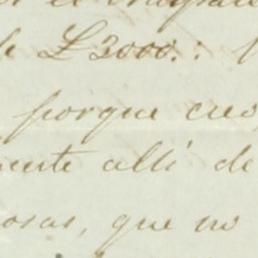 de £3000.:
porque creo
mente allí de
osas, que no